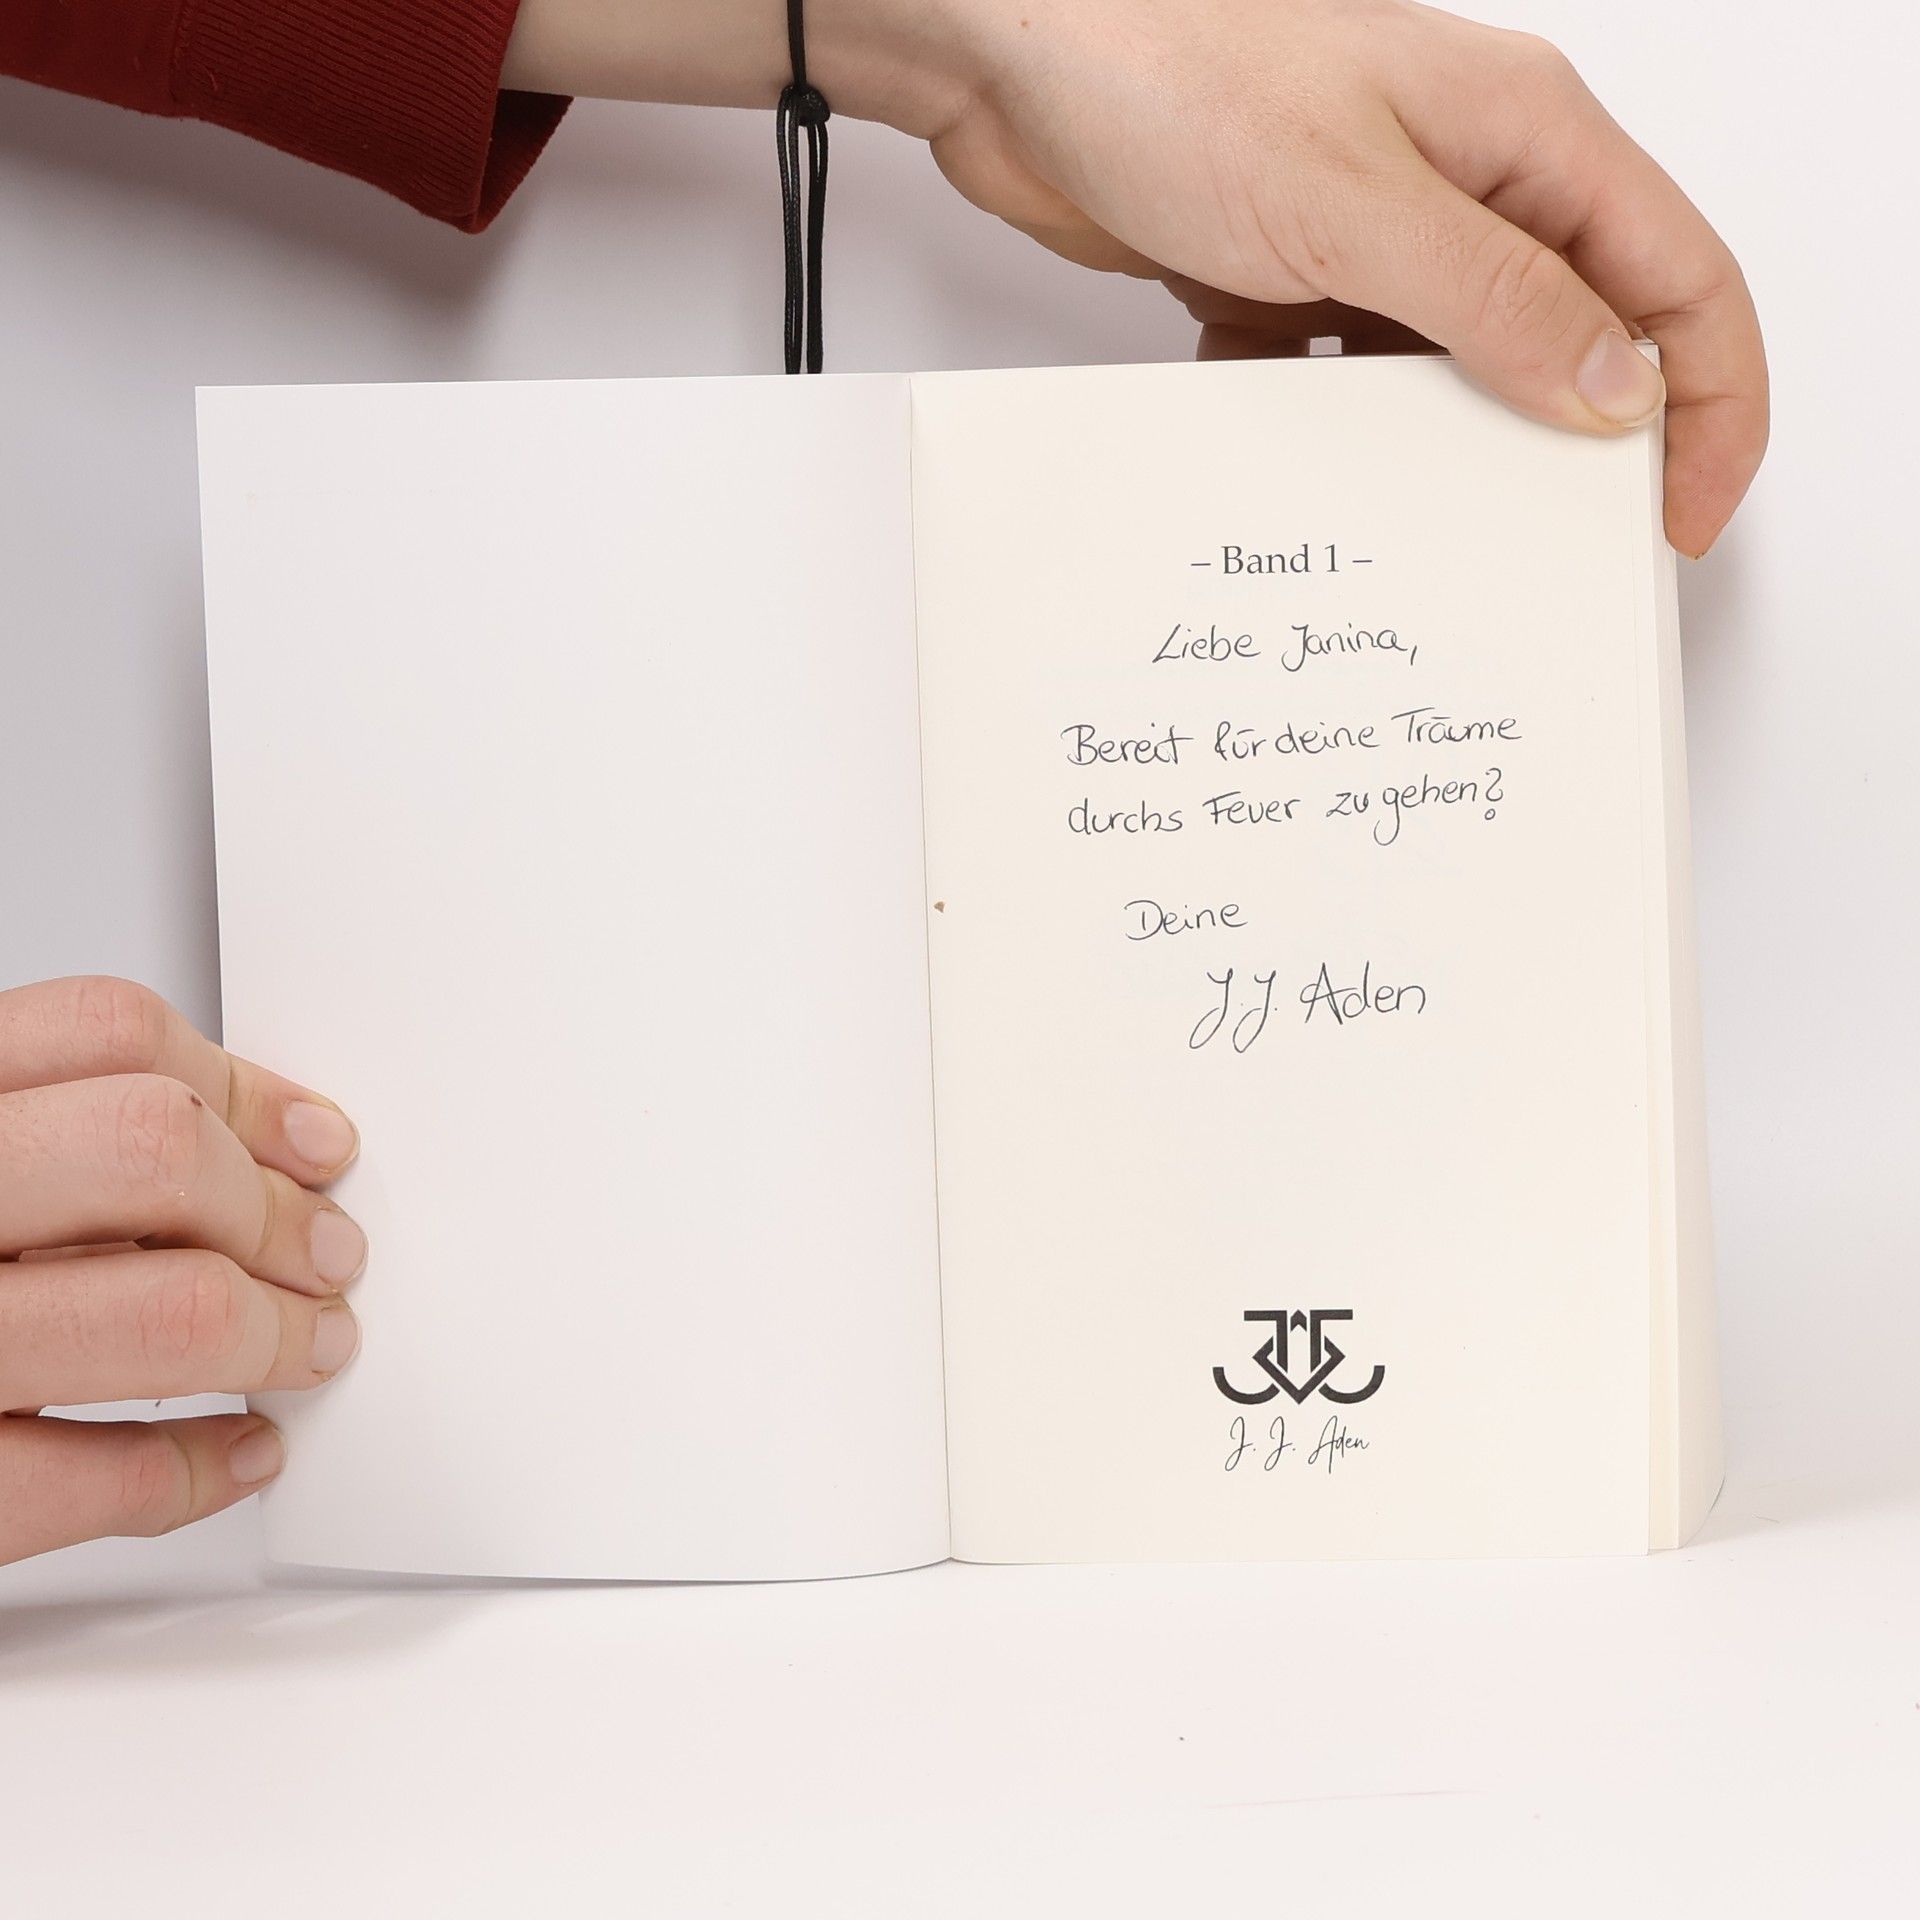 – Band 1 –
Liebe Janina,
Bereit für deine Träume
durchs Feuer zu gehen?
Deine
J.J. Aden
J. J. Aden